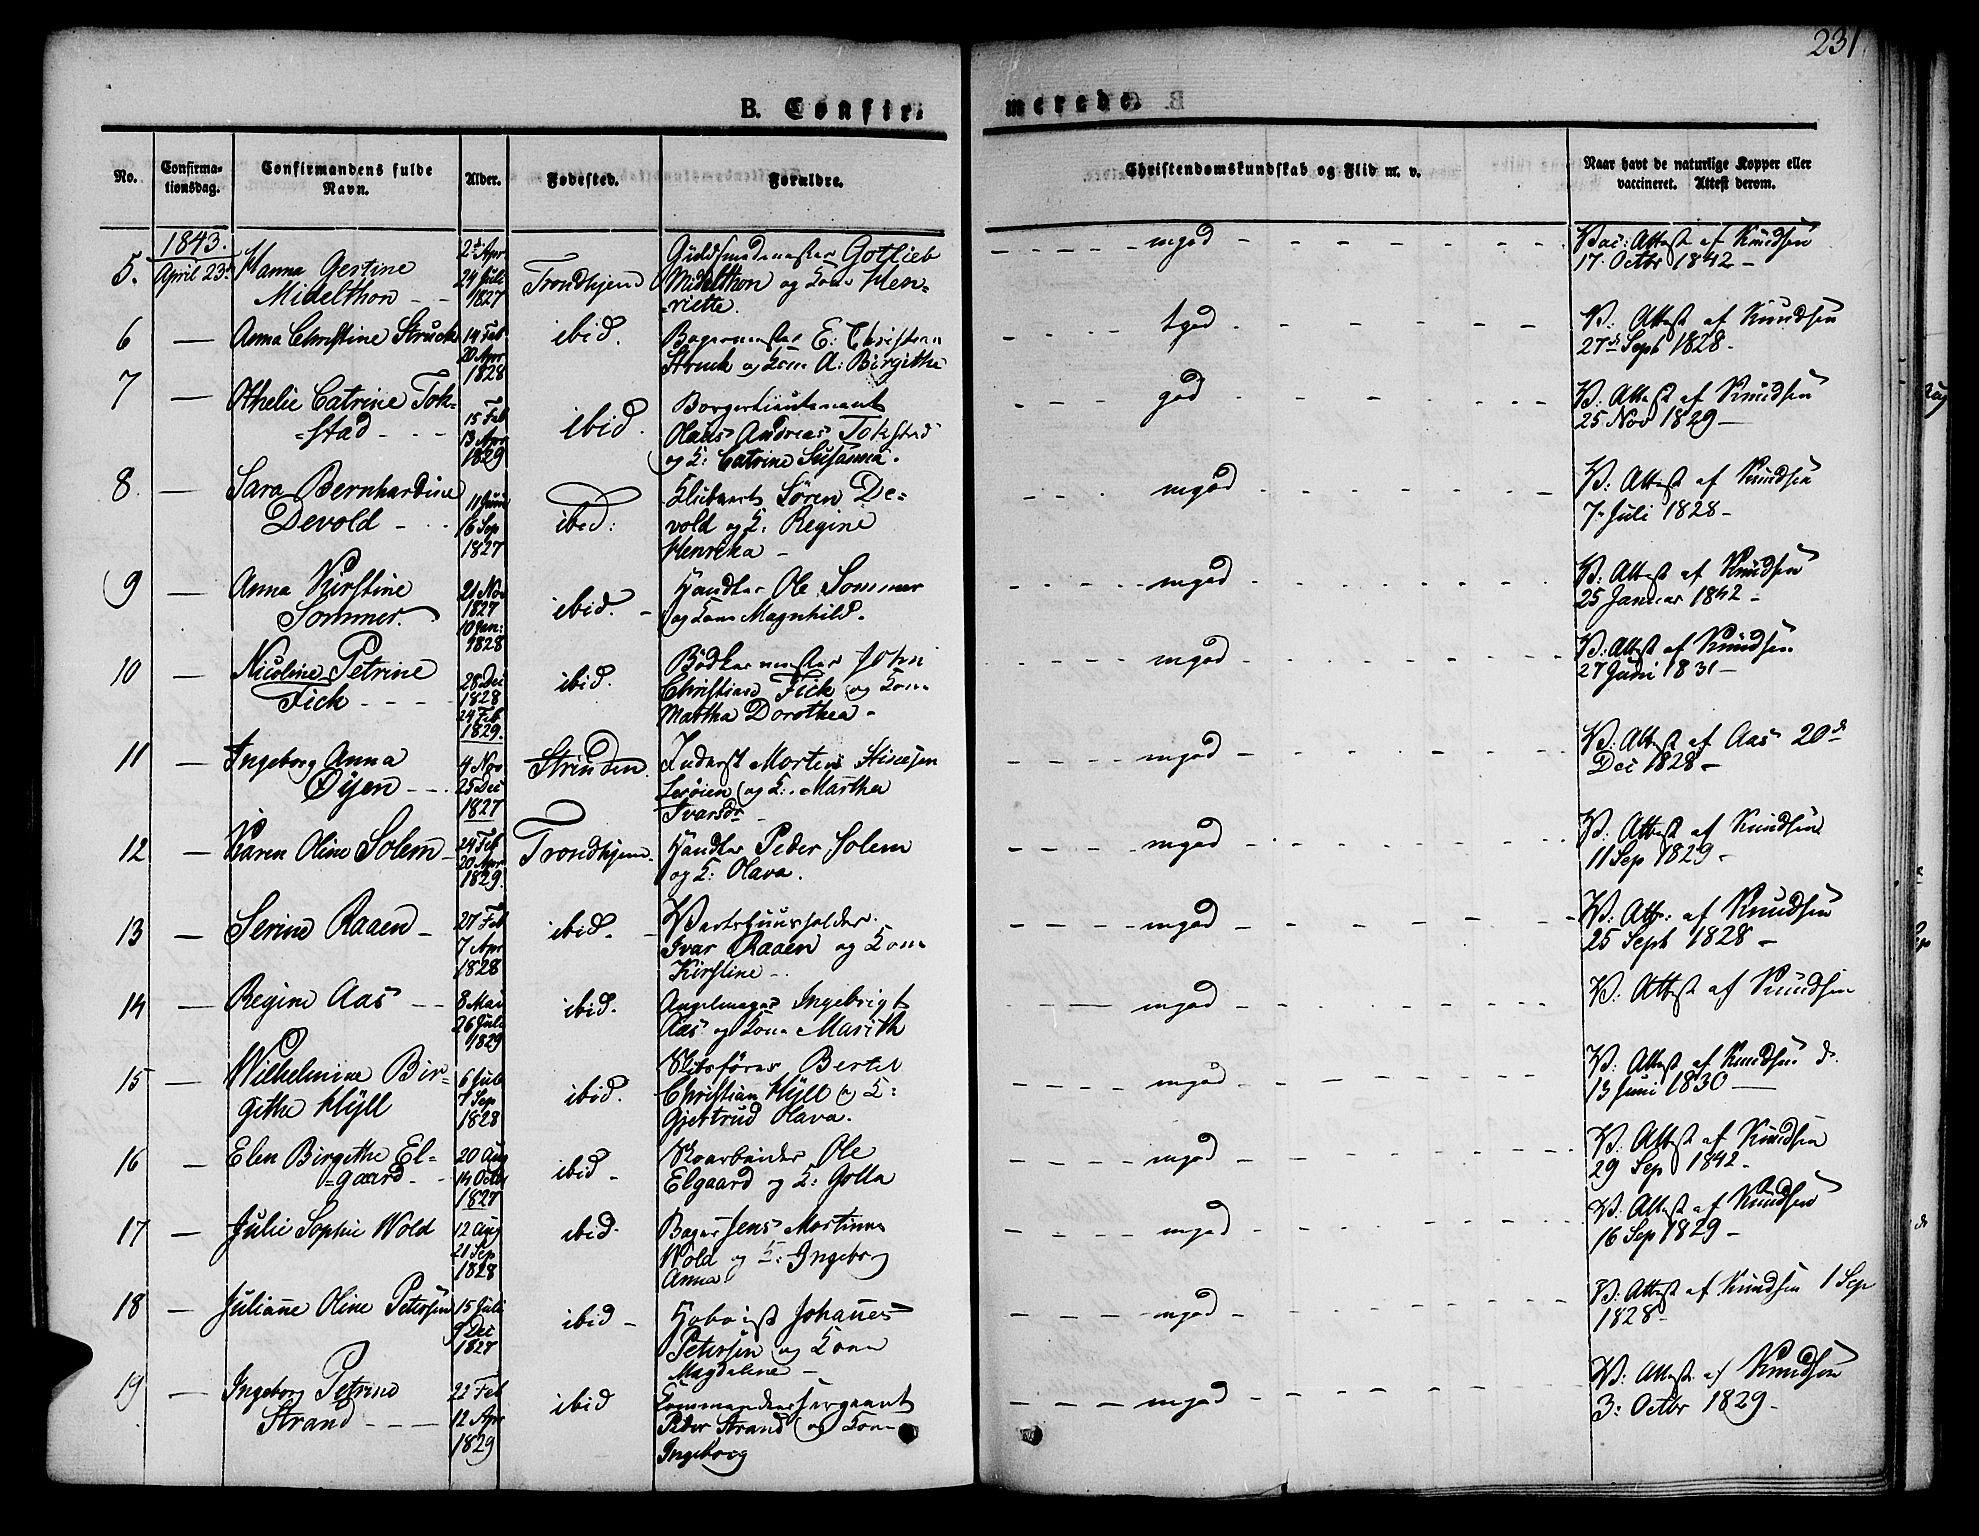 231
B. Confir-
merede.
No.
Confirma-
tionsdag.
Confirmandens fulde
Navn.
Alder.
Fødested.
Forældre.
Christendomskundskab og Flid m. v.
Naar havt de naturlige Kopper eller
vaccineret. Attest derom.
1843.
5. April 23d Hanna Gestine
Midelthon
2t Apr
24 Juli
1827
Trondhjem
Guldsmedmester Gotlieb
Midelthon og Kone Hen-
riette.
mgod
Vac: Attest af Knudsen
17 Octbr 1842
6 Anna Christine Struck
14 Feb
20 Apr
1828
ibid.
Bagermester E: Christian
Struck og Kone A: Birgitha
tgod
V: Attest af Knudsen
27d Sept 1828.
7 Othelie Catrine Tok-
stad
15 Feb
13 Apr
1829
ibid.
Borgerlieutenant
Olaus Andreas Tokstad
og K: Catrine Susanna.
god
V: Attest af Knudsen
25 Nov 1829
8. Sara Bernhardine
Devold
11 Juni
16 Sep
1827
ibid:
Søren De-
vold og K: Regine
Henrika
mgod
V: Attest af Knudsen
7 Juli 1828
9 Anna Kirstine
Sommer.
21 Nov
1827
10 Jan:
1828
ibid.
Handler Ole Sommer
og Kone Magnhild.
mgod
V: Attest af Knudsen
25 Januar 1842
10 Nicoline Petrine
Fick
28 Dec
1828
24 Feb
1829.
ibid.
Bødkermester John
Christian Fick og Kone
Martha Dorothea
mgod
V: Attest af Knudsen
27 Juni 1831
11 Ingeborg Anna
Øyen
4 Nov
25 Dec
1827
Strinden.
Inderst Morten
og K: Martha
Ivarsdr
mgod
V: Attest af Aas 20d
Dec 1828
12 Karen Oline Solem
24 Feb
20 Apr
1829.
Trondhjem.
Handler Peder Solem
og K: Olava.
mgod
V: Attest af Knudsen
11 Sep 1829
13 Serine Raaen
27 Feb
7 Apr
1828
ibid.
Vertshuusholder
Ivar Raaen og Kone
Kirstine
mgod
V: Att: af Knudsen
25 Sept 1828
14 Regine Aas
8 Mai
26 Juli
1829
ibid.
Ingebrigt
Aas og Kone Marith
mgod
V: Attest af Knudsen
15 Wilhelmine Bir-
githe Hyll
6 Juli
7 Sep
1828
ibid.
Bertel
Christian Hyll og K:
Gjertrud Olava.
mgod
V: Attest af Knudsen d.
13 Juni 1830
16 Elen Birgithe El-
gaard
20 Aug
14 Octbr
1827
ibid
Ole
Elgaard og K: Golla
mgod
V: Attest af Knudsen
29 Sep 1842
17 Julie Sophie Wold
12 Aug
21 Sep
1828
ibid.
Bager Jens Martinus
Wold og K: Ingeborg
Anna
mgod
V: Attest af Knudsen
16 Sep 1829
18 Juliane Oline Petersen
15 Juli
9 Dec
1827
ibid
Hoboist Johannes
Petersen og Kone
Magdalene
mgod
V: Attest af Knudsen 1 Sep
1828
19 Ingeborg Petrine
Strand
22 Feb
12 Apr
1829
ibid
Commandeersergeant
Peder Strand og Kone
Ingeborg
mgod
V: Attest af Knudsen
3: Octbr 1829